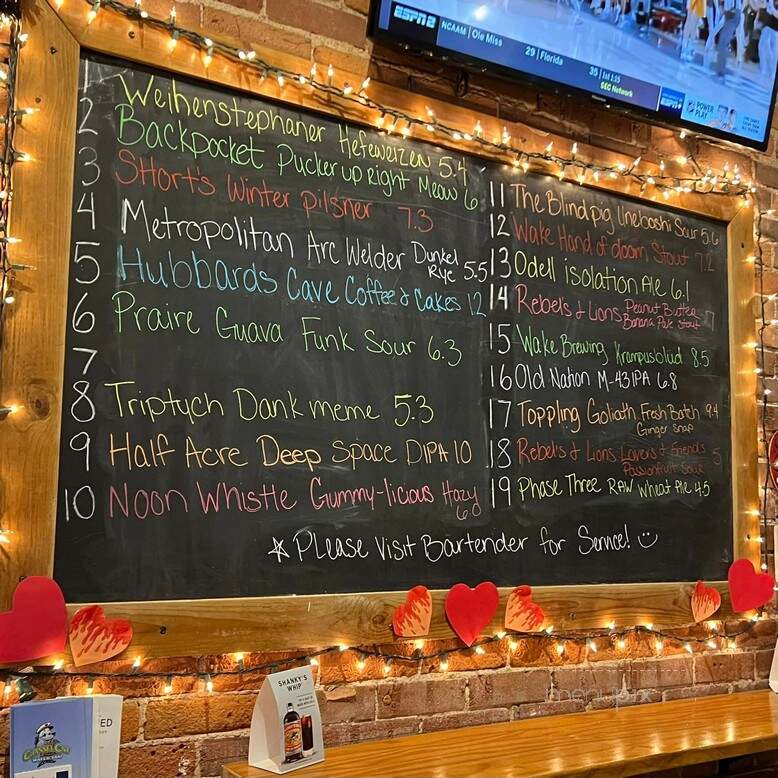 ESPN2
NCAAM | Ole Miss
29 | Florida
35 | 1st 1:15
SEC Network
POWER
PLAY
1 Weihenstephaner Hefeweizen 5.4
2 Backpocket Pucker up right Meow 6
3 Short's Winter pilsner 7.3
4 Metropolitan Arc Welder Dunkel
Rye 5.5
5 Hubbards Cave Coffee & Cakes 12
6 Praire Guava Funk Sour 6.3
7
8 Triptych Dank meme 5.3
9 Half Acre Deep Space DIPA 10
10 Noon Whistle Gummy-licious Hazy
6.0
11 The Blind pig Umeboshi Sour 5.6
12 Wake Hand of doom Stout 7.2
13 Odell isolation Ale 6.1
14 Rebel's & Lions Peanut Butter
Banana Pale Stout 7
15 Wake Brewing Krampusblud 8.5
16 Old Nation M-43 IPA 6.8
17 Toppling Goliath Fresh Batch 9.4
Ginger Snap
18 Rebel's & Lions Lovers & Friends 5
Passionfruit Sour
19 Phase Three RAW Wheat Ale 4.5
* Please Visit Bartender for Service!
SHANKY'S
WHIP